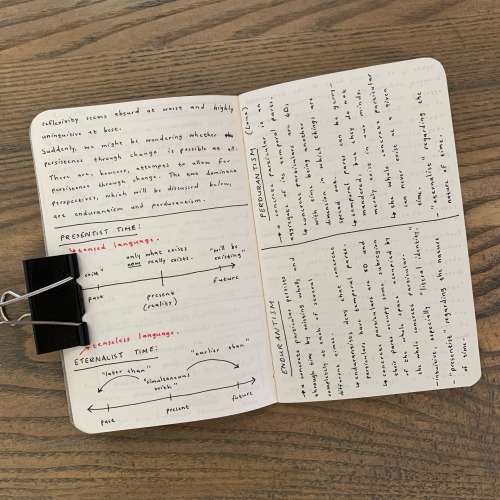 reflexivity seems absurd at worse and highly
uninuitive at best.
Suddenly, we might be wondering whether
persistence through change is possible at all.
There are, however, attempts to allow for
persistence through change. The two dominate
perspectives, which will be discussed below,
are endurantism and perdurantism.
PRESENTIST TIME:
↳tensed language.
only what exists
now really exists.
"will be
existing"
past
present
(reality)
future
↗tenseless language.
ETERNALIST TIME:
"later than"
"earlier than"
"simultaneous
with"
past
present
future
ENDURANTISM
→ a concrete particular persists
through time by existing wholly and
completely at each of several
different times.
↳ endurantists deny that concrete
particulars have temporal parts.
↳ concrete particulars are 3D and
their parts occupy some subregion
of the whole space occupied by
the whole concrete particular.
- intuitive, especially "literal identity."
- "presentist" regarding the nature
of time.
PERDURANTISM (Loux)
→ a concrete particular is an
aggregate of its temporal parts.
↳ concrete particulars are 4D,
with time being another
dimension in which things are
spread out.
↳ temporal parts can be gerry-
mandered, but they do not
merely exist in our minds.
↳ the whole concrete particular
can never exist at a given
time.
- "eternalist" regarding the
nature of time.